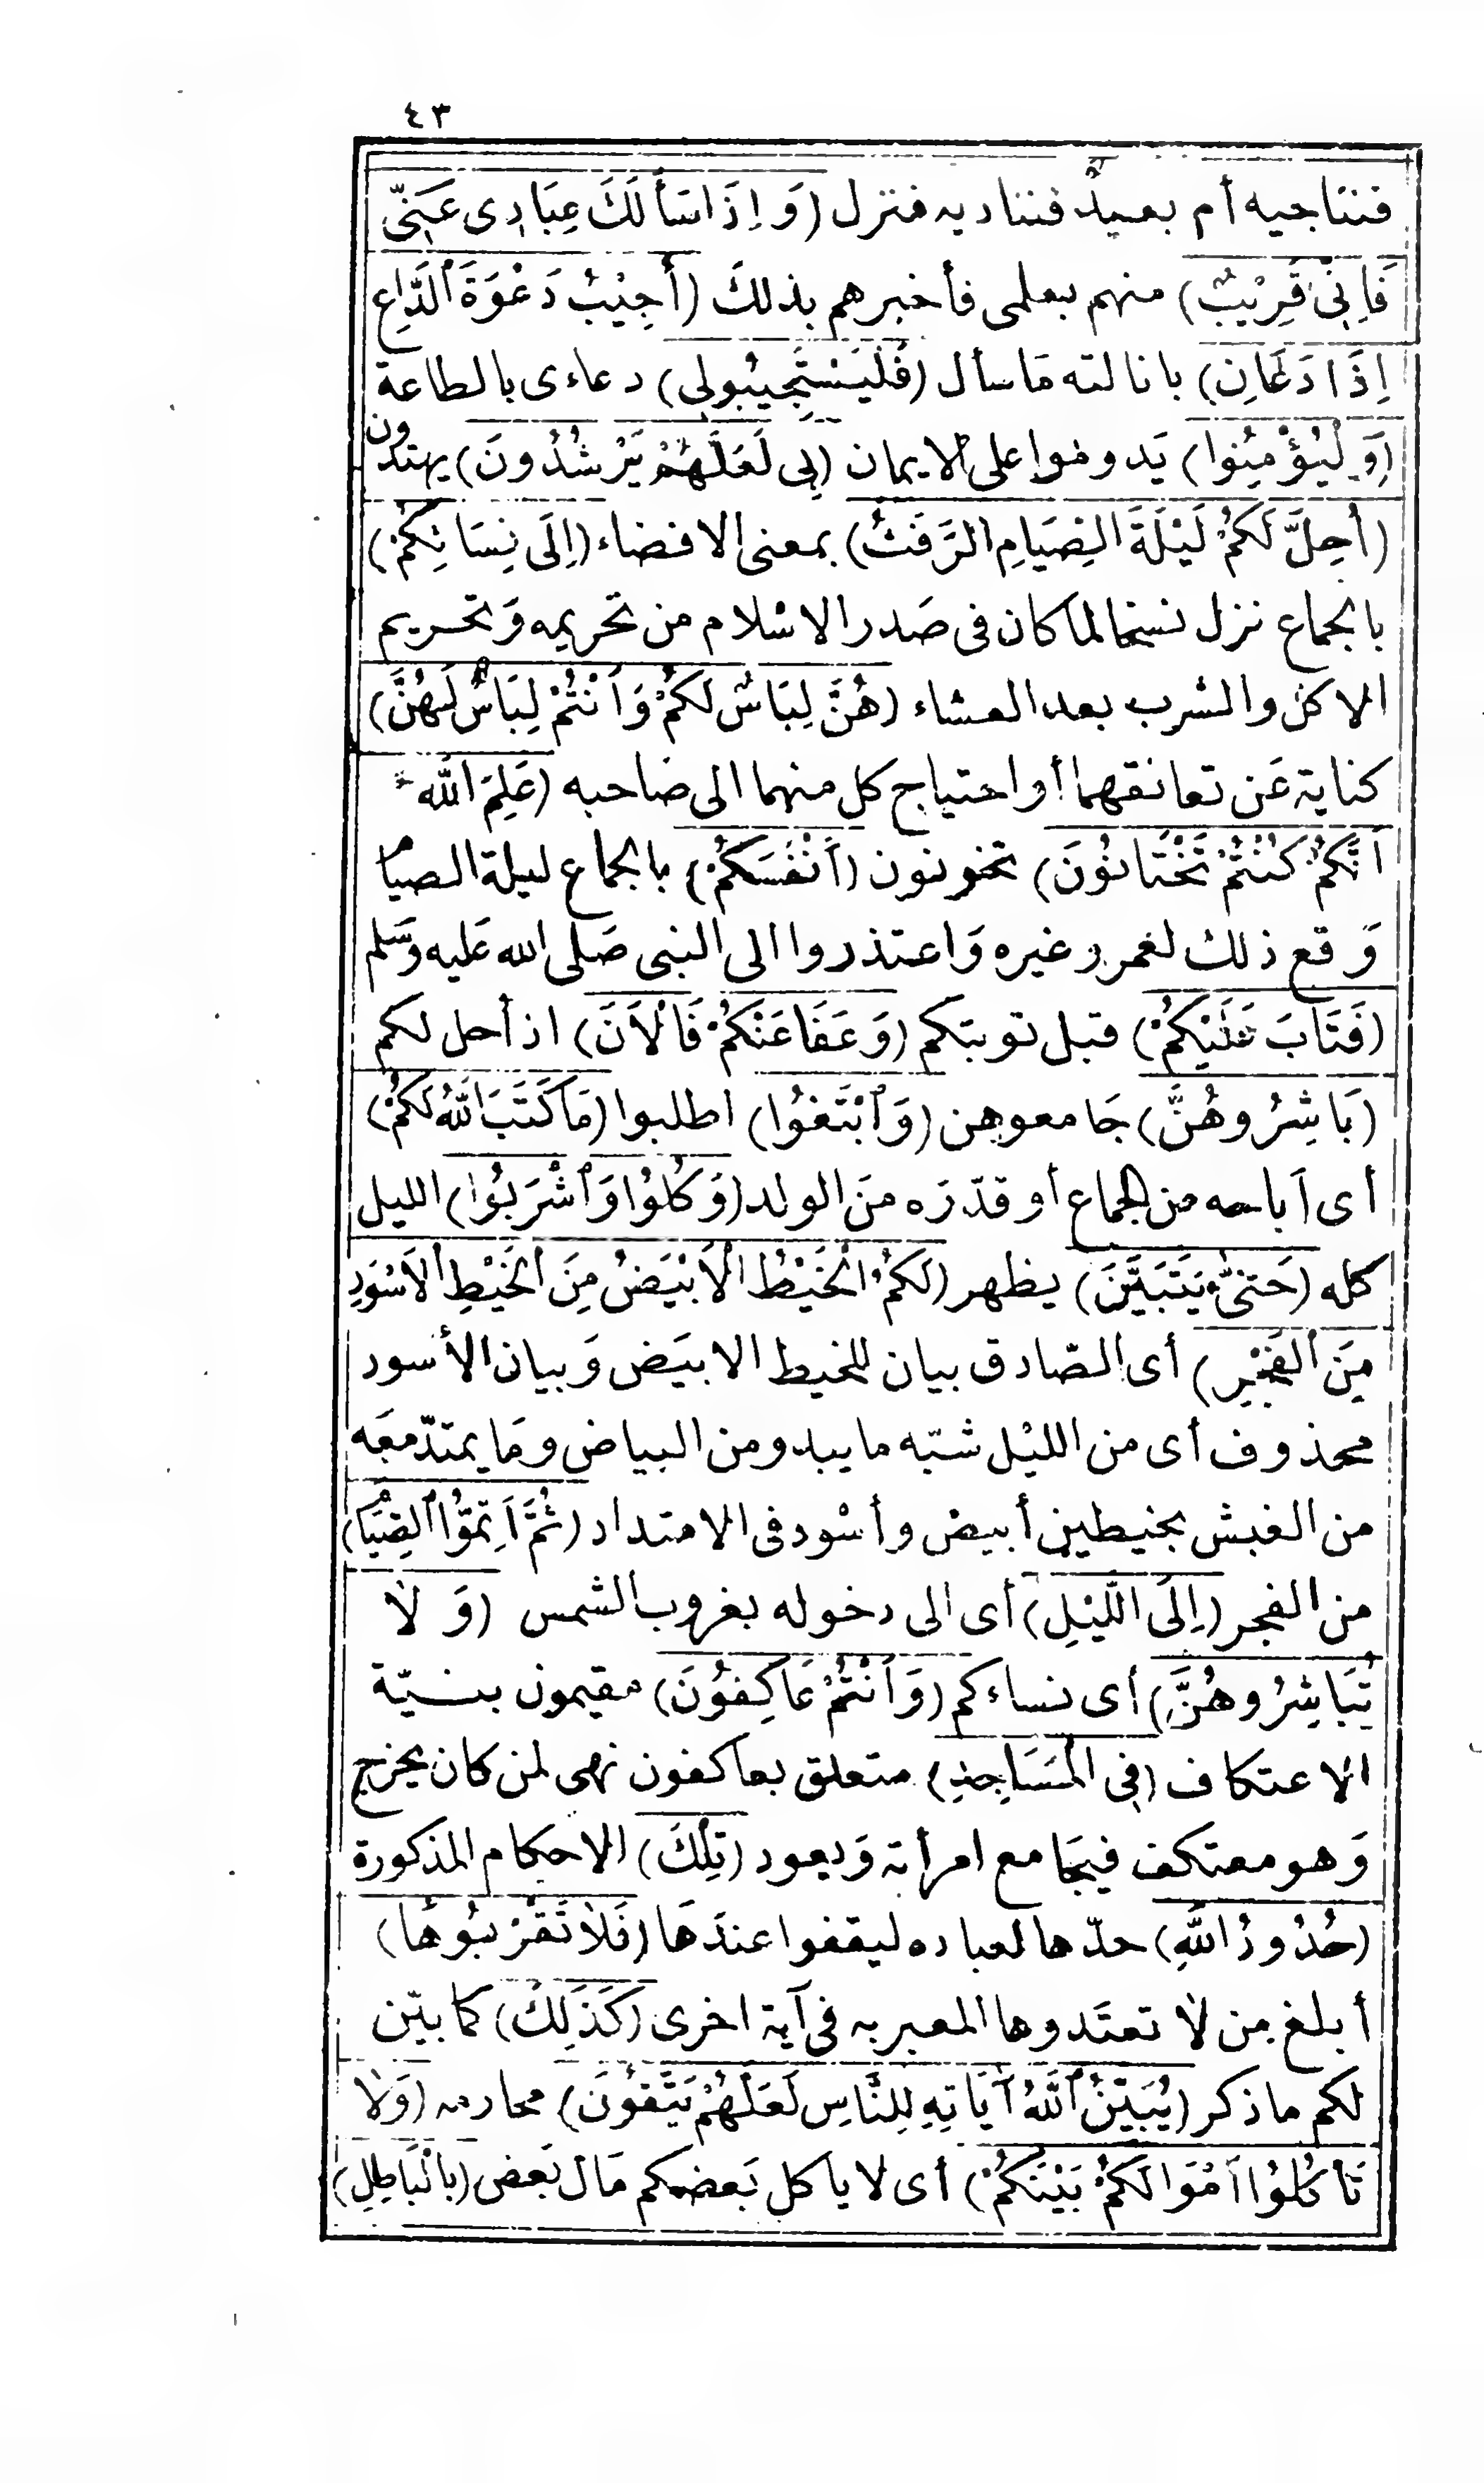 ٤٣
فنناجيه أم بعيد فنناديه فنزل (وَاِذَا سَأَلَكَ عِبَادِى عَنِّى
فَاِنِّى قَرِيْبٌ) منهم بعلمى فأخبرهم بذلك (أُجِيْبُ دَعْوَةَ الدَّاعِ
اِذَا دَعَانِ) بانالته مَا سأل (فَلْيَسْتَجِيْبُولِى) دعاءى بالطاعة
(وَلْيُؤْمِنُوا) يَدوموا على الايمان (بِى لَعَلَّهُمْ يَرْشُدُونَ) يهتدون
(أُحِلَّ لَكُمْ لَيْلَةَ الصِّيَامِ الرَّفَثُ) بمعنى الافضاء (اِلَى نِسَائِكُمْ)
بالجماع نزل نسخا لما كان فى صَدر الاسْلام من تحريمه وَتحريم
الاكل والشرب بعد العشاء (هُنَّ لِبَاسٌ لَكُمْ وَاَنْتُمْ لِبَاسٌ لَهُنَّ)
كناية عَن تعانقهما أو احتياج كل منهما الى صَاحبه (عَلِمَ اللّٰهُ
اَنَّكُمْ كُنْتُمْ تَخْتَانُوْنَ) تخونون (أَنْفُسَكُمْ) بالجماع ليلة الصيام
وَقع ذلك لعمر وغيره وَاعتذروا الى النبى صَلى الله عَليه وَسَلم
(فَتَابَ عَلَيْكُمْ) قبل توبتكم (وَعَفَا عَنْكُمْ فَالْاَنَ) اذ أحل لكم
(بَاشِرُوهُنَّ) جَامعوهن (وَابْتَغُوْا) اطلبوا (مَا كَتَبَ اللّٰهُ لَكُمْ)
أى اَباحه من الجماع أو قدّرَه منَ الولد (وَكُلُوْا وَاشْرَبُوْا) الليل
كله (حَتّٰى يَتَبَيَّنَ) يظهر (لَكُمُ الْخَيْطُ الْاَبْيَضُ مِنَ الْخَيْطِ الْاَسْوَدِ
مِنَ الْفَجْرِ) أى الصّادق بيان للخيط الابيَض وَبيان الأسود
محذوف أى من الليْل شبّه ما يبدو من البياض ومَا يمتدّ معَه
من الغبش بخيطين أبيض وأسْود فى الامتداد (ثُمَّ اَتِمُّوْا الصِّيَا)
من الفجر (اِلَى اللَّيْلِ) أى الى دخوله بغروب الشمس (وَلَا
تُبَاشِرُوهُنَّ) أى نساءكم (وَاَنْتُمْ عَاكِفُوْنَ) مقيمون بنيّة
الاعتكاف (فِى الْمَسَاجِدِ) متعلق بعاكفون نهى لمن كان يخرج
وَهو معتكف فيجَامع امرأته وَيعود (تِلْكَ) الاحكام المذكورة
(حُدُودُ اللّٰهِ) حدّها لعباده ليقفوا عندَهَا (فَلَا تَقْرَبُوهَا)
أبلغ من لا تعتَدوها المعبر به فى آية اخرى (كَذَلِكَ) كما بيّن
لكم ما ذكر (يُبَيِّنُ اللّٰهُ آيَاتِهِ لِلنَّاسِ لَعَلَّهُمْ يَتَّقُوْنَ) محارمه (وَلَا
تَأْكُلُوْا اَمْوَالَكُمْ بَيْنَكُمْ) أى لا ياكل بَعضكم مَال بَعض (بِالْبَاطِلِ)